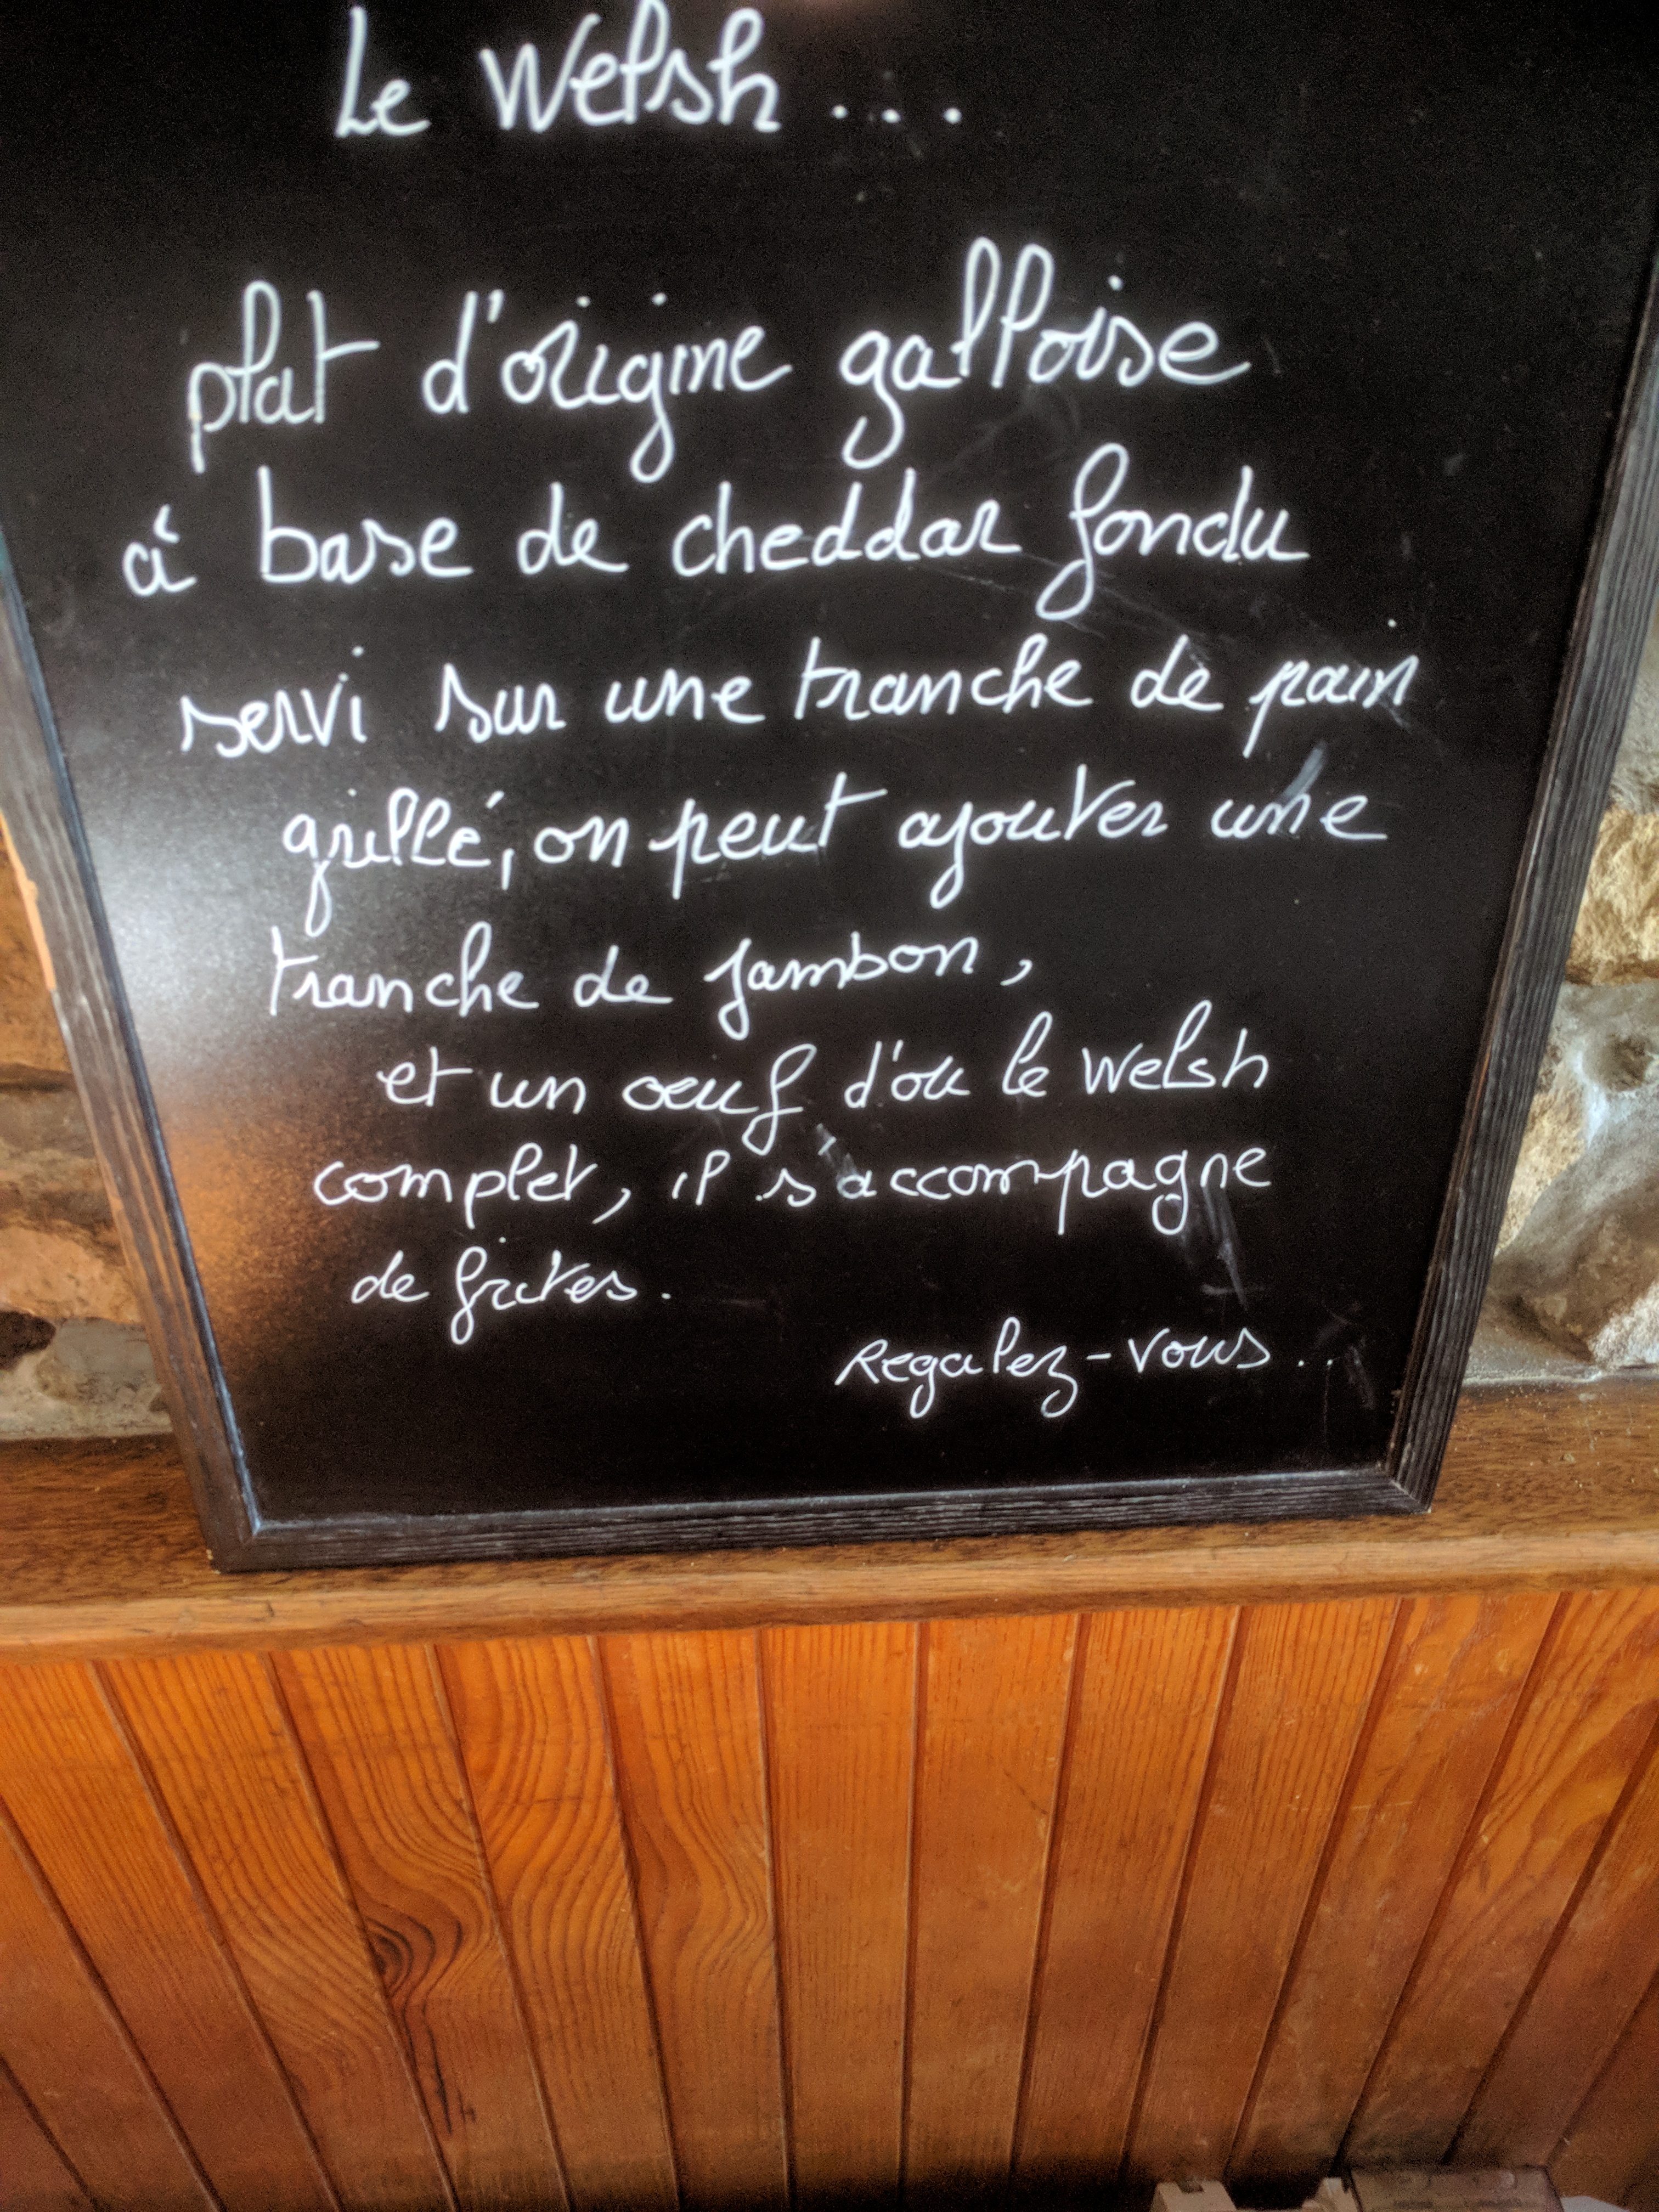 Le Welsh ...
plat d'origine galloise
à base de cheddar fondu
servi sur une tranche de pain
grillé, on peut ajouter une
tranche de jambon,
et un oeuf d'ou le welsh
complet, il s'accompagne
de frites.
Regalez-vous...